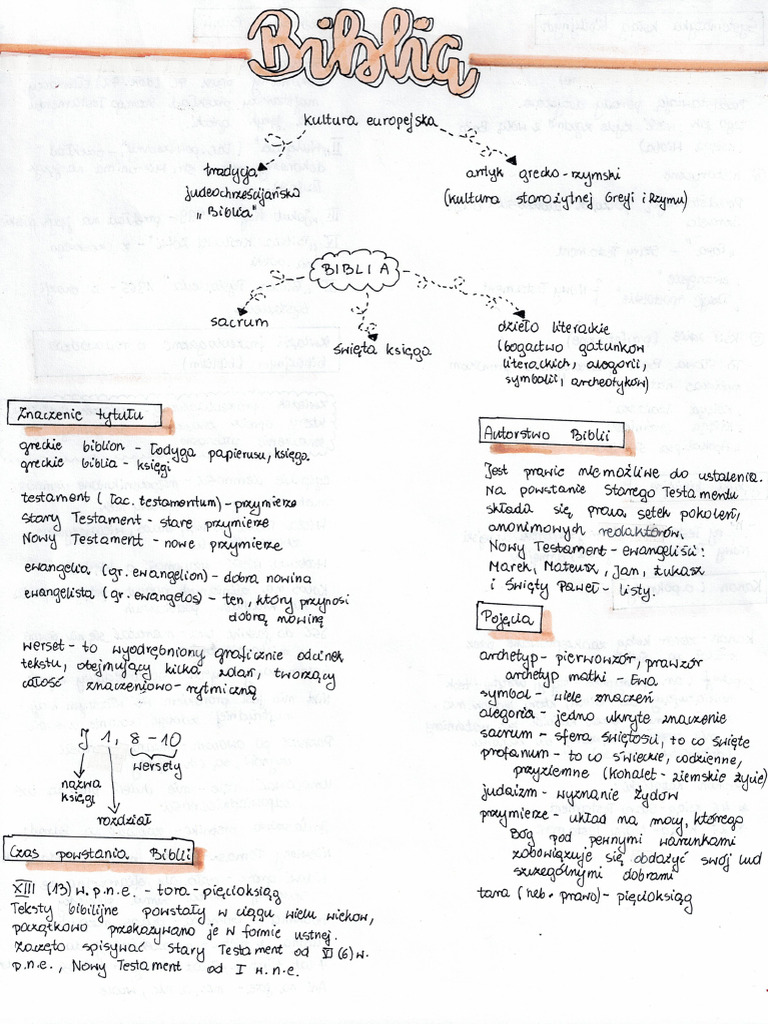 Biblia
kultura europejska
tradycja
judeochrześcijańska
"Biblia"
antyk grecko-rzymski
(kultura starożytnej Grecji i Rzymu)
BIBLIA
sacrum
święta księga
dzieło literackie
(bogactwo gatunków
literackich, alegorii,
symbolii, archeotyków)
Znaczenie tytułu
greckie biblion - łodyga papierusu, księgo.
greckie biblia - księgi
testament (łac. testamentum) - przymierze
Stary Testament - stare przymierze
Nowy Testament - nowe przymierze
ewangelia (gr. ewangelion) - dobra nowina
ewangelista (gr. ewangelos) - ten, który przynosi
dobrą nowinę
werset - to wyodrębniony graficznie odcinek
tekstu, obejmujący kilka zdań, tworzący
całość znaczeniowo-rytmiczną
J 1, 8-10
wersety
nazwa
księgi
rozdział
Czas powstania Biblii
XIII (13) w. p.n.e. - tora - pięcioksiąg
Teksty biblijne powstały w ciągu wielu wieków,
początkowo przekazywano je w formie ustnej.
Zaczęto spisywać Stary Testament od VI (6) w.
p.n.e., Nowy Testament od I w. n.e.
Autorstwo Biblii
Jest prawie niemożliwe do ustalenia.
Na powstanie Starego Testamentu
składa się praca setek pokoleń,
anonimowych redaktorów.
Nowy Testament - ewangeliści:
Marek, Mateusz, Jan, Łukasz
i Święty Paweł - listy.
Pojęcia
archetyp - pierwowzór, prawzór
archetyp matki - Ewa
symbol - wiele znaczeń
alegoria - jedno ukryte znaczenie
sacrum - sfera świętości, to co święte
profanum - to co świeckie, codzienne,
przyziemne (Kohelet - ziemskie życie)
judaizm - wyznanie Żydów
przymierze - układ na mocy, którego
Bóg pod pewnymi warunkami
zobowiązuje się obdażyć swój lud
szczególnymi dobrami
tora (heb. prawo) - pięcioksiąg